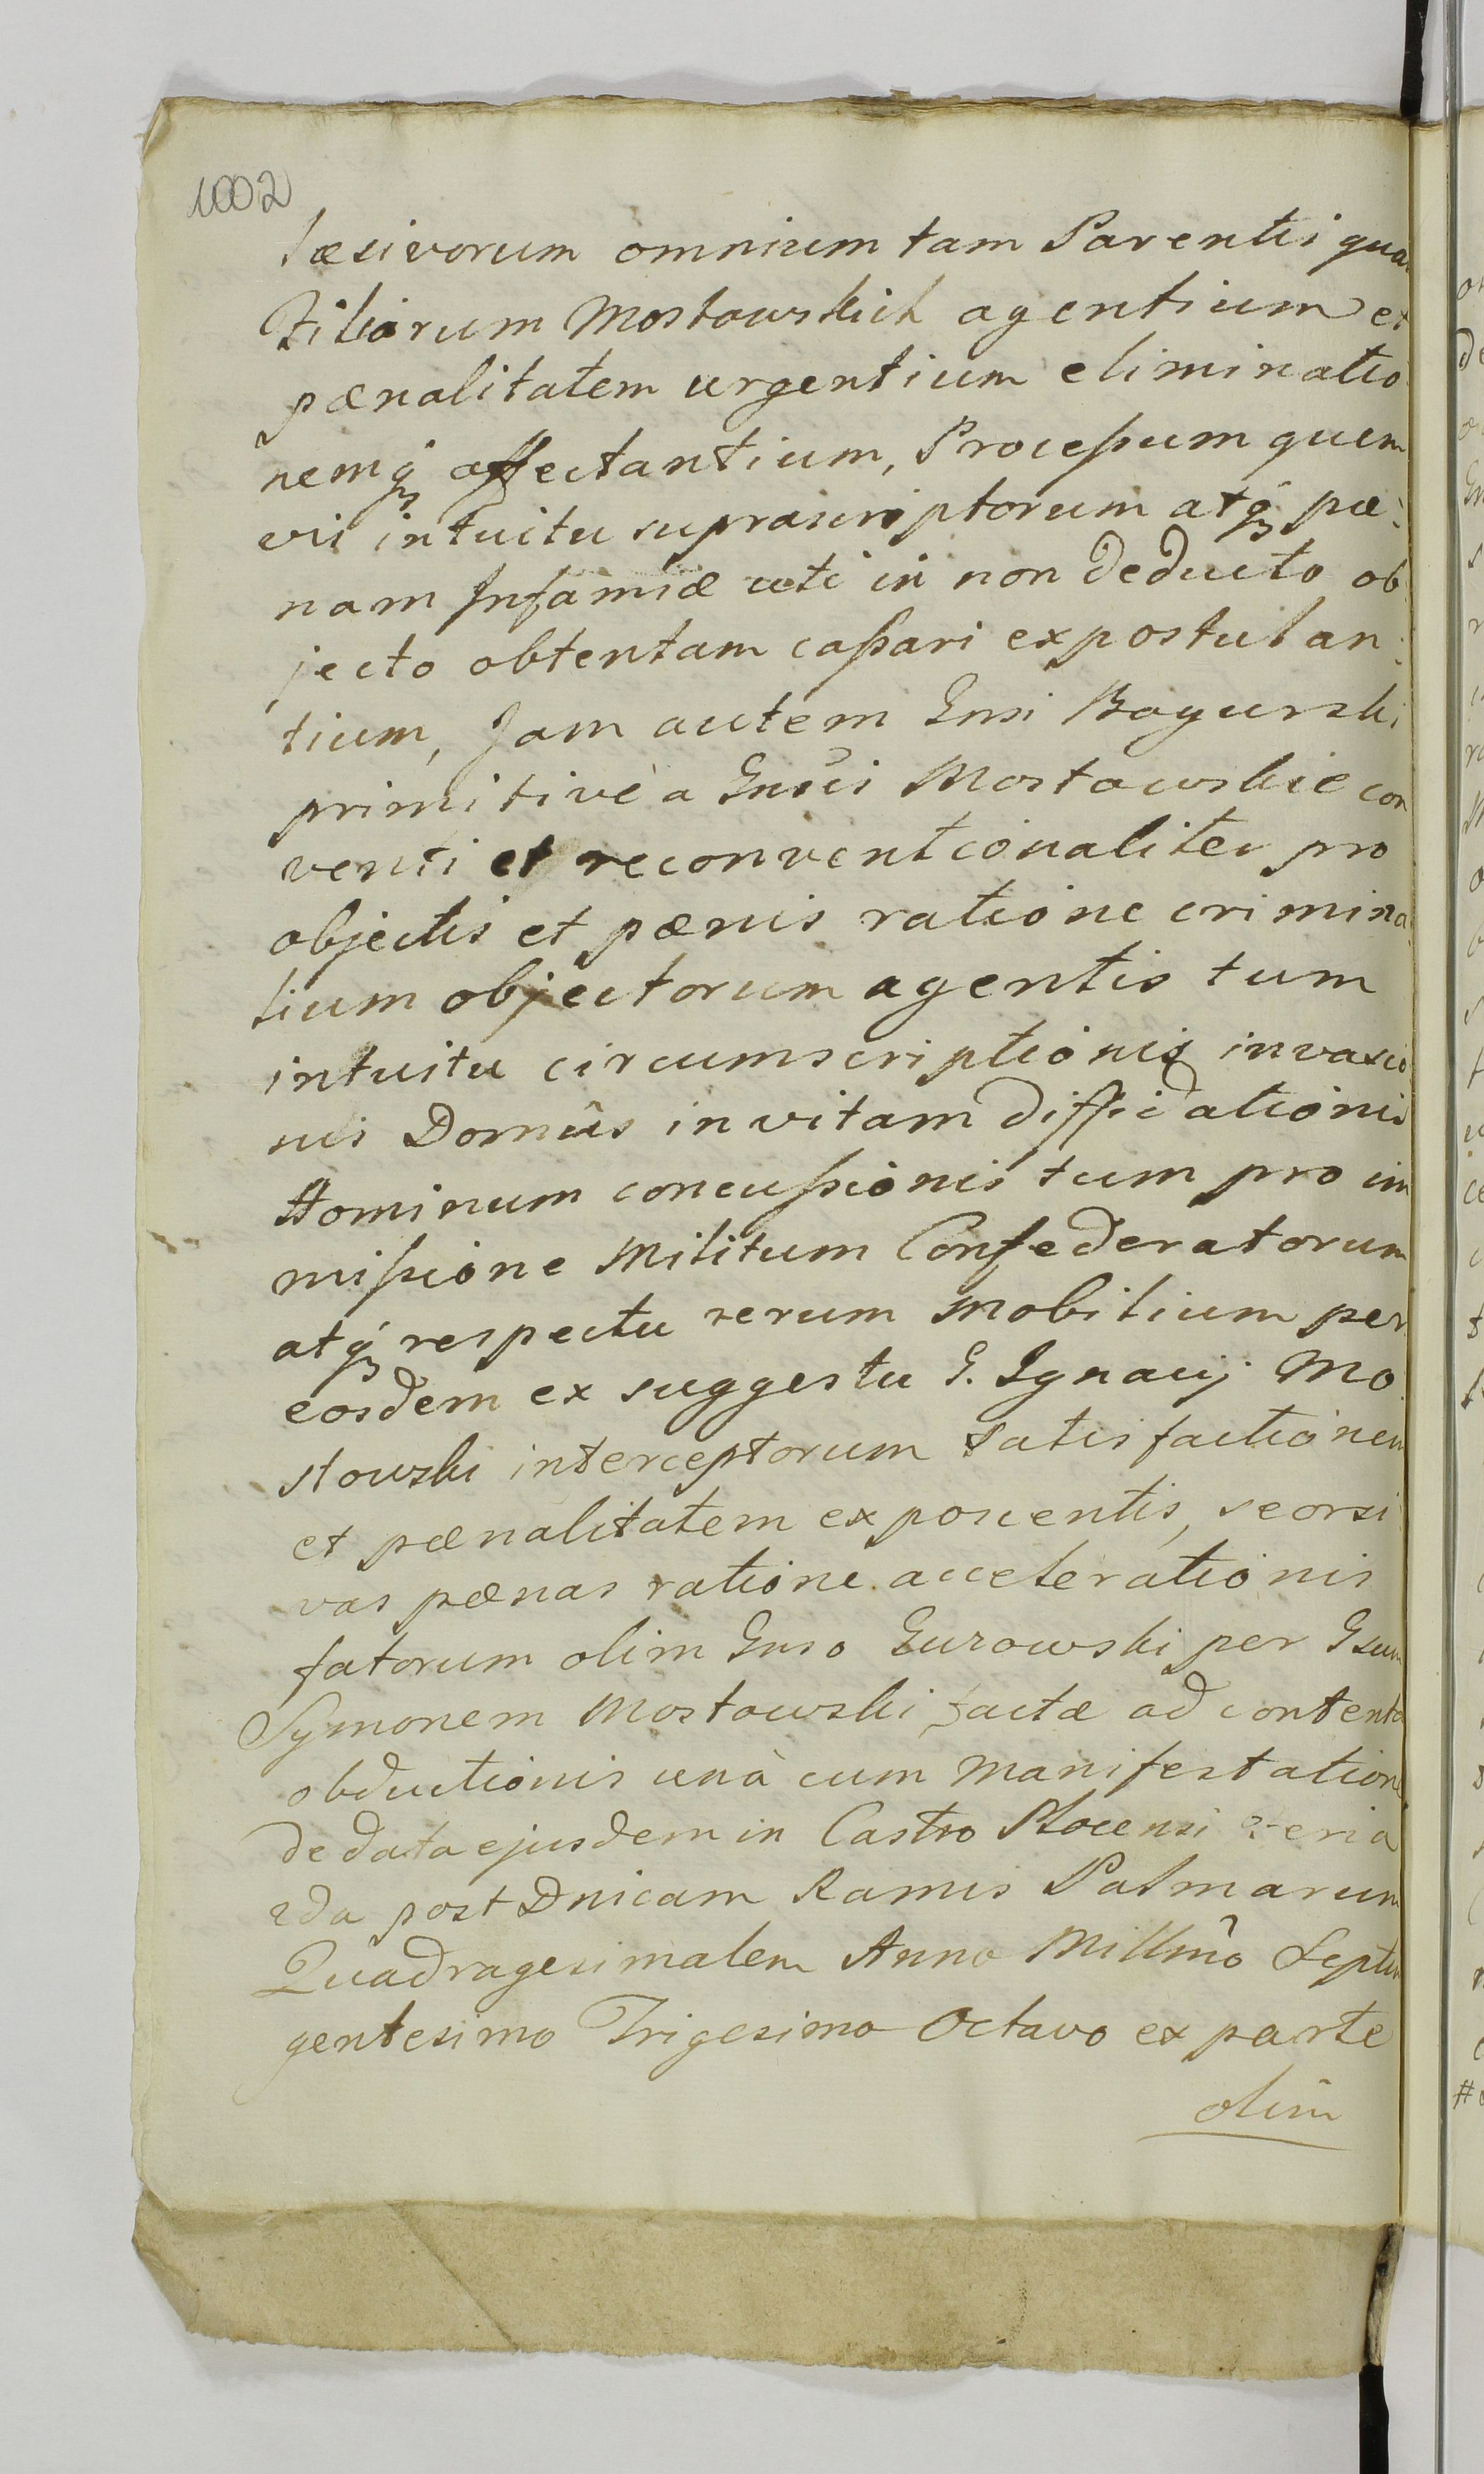 1002
læsivorum omnium tam Parentis qua
Filiorum Mostowskich agentium et
pænalitatem urgentium eliminatio
nemq́ affectantium, Processum quem
vis intuitu suprascriptorum atq́ pæ:
nam Infamiæ uti in non deducto ob
jecto obtentam cassari expostulan:
tium, Jam autem Gnsi Bogurski
primitivè a Gnsis Mostowskie con
venti et reconventionaliter pro
objectis et pænis ratione crimina
lium objectorum agentis tum
intuitu circumscriptionis invasio
nis Domûs in vitam diffidationis
Hominum concussionis tum pro im
missione Militum Confederatorum
atq́ respectu rerum mobilium per
eosdem ex suggestu G. Ignacij Mo
stowski interceptorum satisfactionem
et pænalitatem exponentis, seorsi
vas pænas ratione accelerationis
fatorum olim Gnso Gurowski per Gsum
Symonem Mostowski factæ ad contenta
obductionis unà cum manifestatione
de data ejusdem in Castro Plocensi Feria
2da post Dnicam Ramis Palmarum
Quadragesimalem Anno Millmo Septin
gentesimo Trigesimo Octavo ex parte
olim